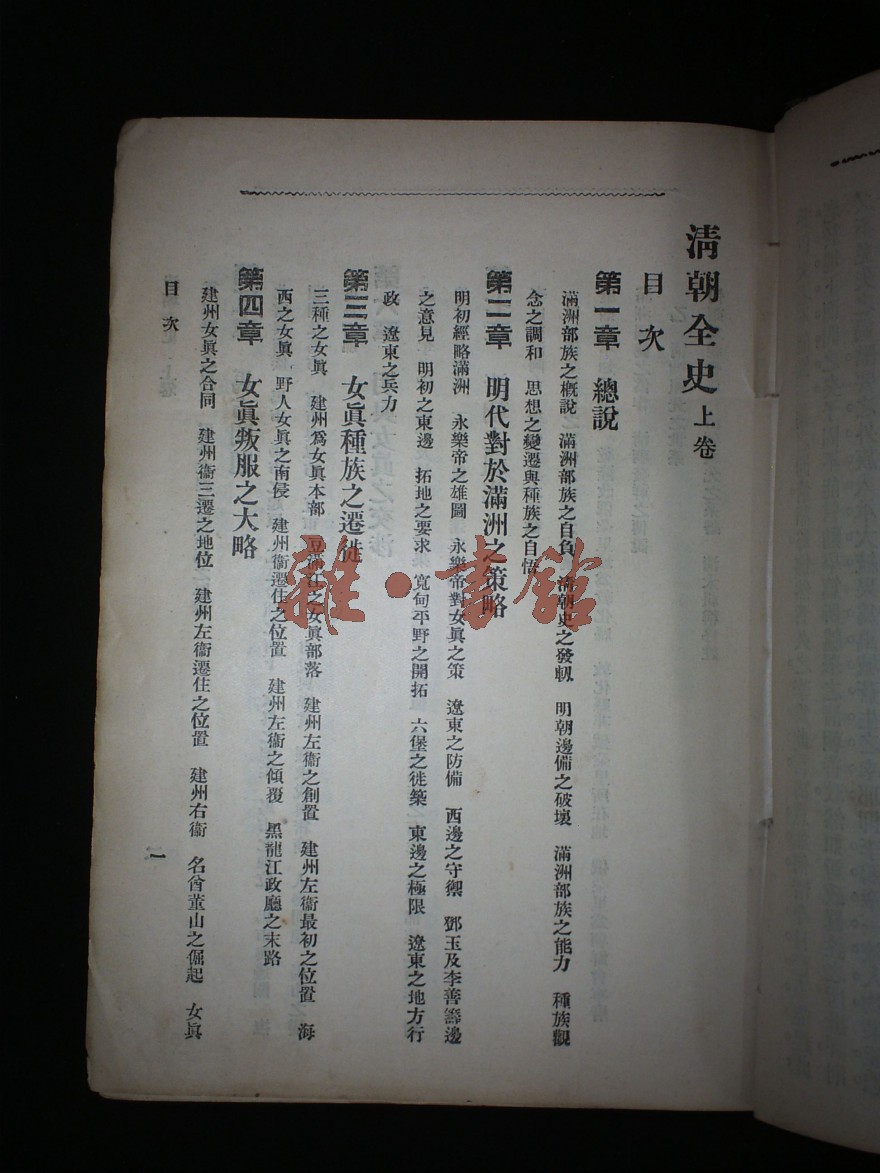 清朝全史 上卷
目次
第一章 總說
滿洲部族之概說 滿洲部族之自負 淸朝史之發軔 明朝邊備之破壞 滿洲部族之能力 種族觀
念之調和 思想之變遷與種族之自悟
第二章 明代對於滿洲之策略
明初經略滿洲 永樂帝之雄圖 永樂帝對女眞之策 遼東之防備 西邊之守禦 鄧玉及李善籌邊
之意見 明初之東邊 拓地之要求 寬甸平野之開拓 六堡之徙築 東邊之極限 遼東之地方行
政 遼東之兵力
第三章 女眞種族之遷徙
三種之女眞 建州爲女眞本部 豆滿江之女眞部落 建州左衞之創置 建州左衞最初之位置 海
西之女眞 野人女眞之南侵 建州衞遷住之位置 建州左衞之傾覆 黑龍江政廳之末路
第四章 女眞叛服之大略
建州女眞之合同 建州衞三遷之地位 建州左衞遷住之位置 建州右衞 名酋董山之倔起 女眞
目次
一
雜·書館